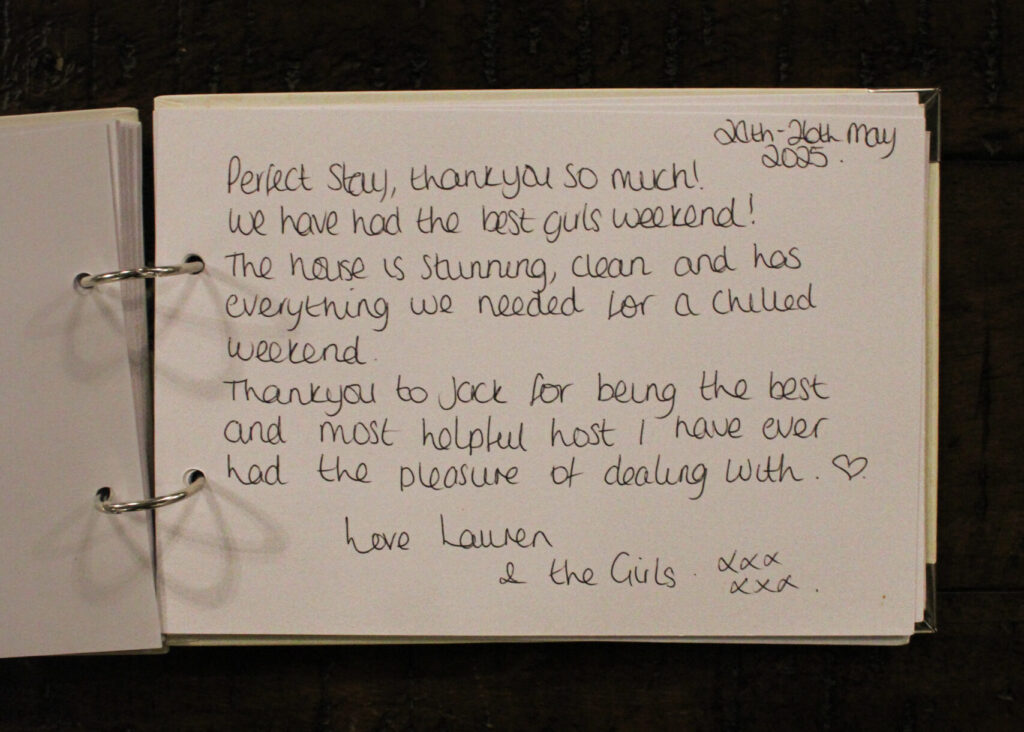 24th-26th May
2025.
Perfect stay, thankyou so much!
We have had the best girls weekend!
The house is stunning, clean and has
everything we needed for a chilled
weekend.
Thankyou to Jack for being the best
and most helpful host I have ever
had the pleasure of dealing with. ♡
Love Lauren
& the Girls. xxx
xxx.